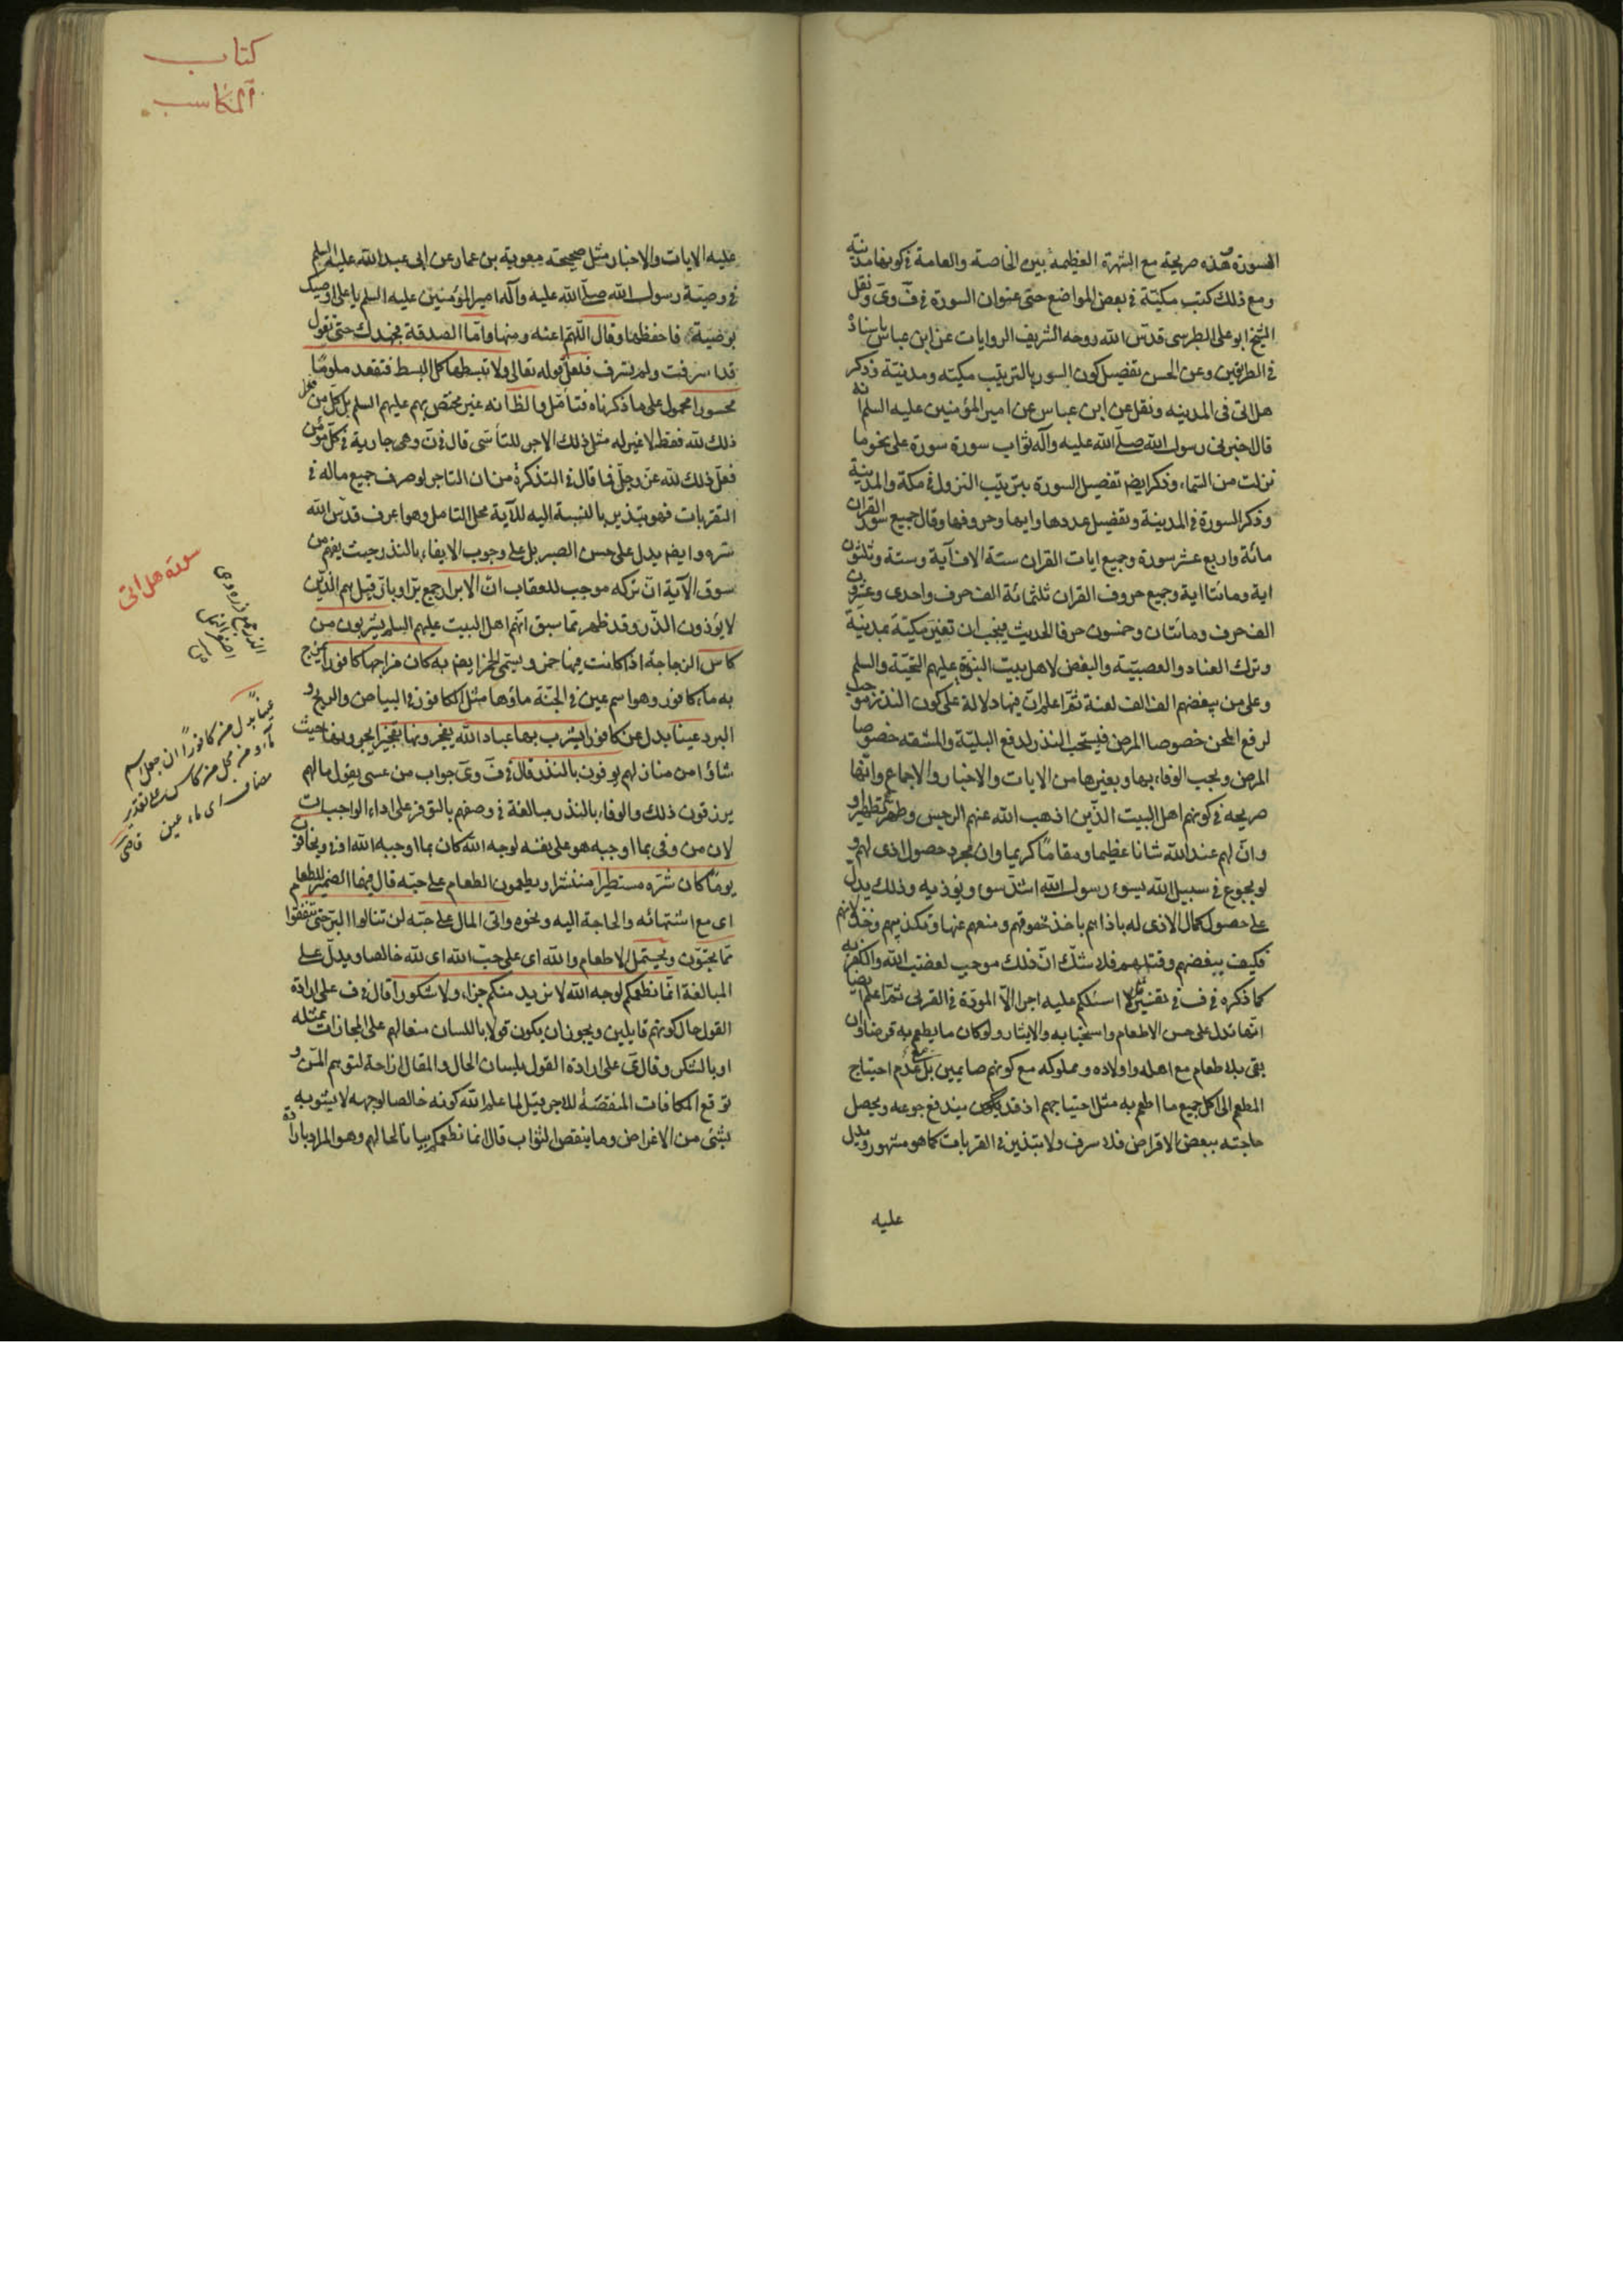 السورة وهذه صريحة مع الشهرة العظيمة بين الخاصة والعامة في كونها مدنية
ومع ذلك كتب مكيّة في بعض المواضع حتى عنوان السورة في ف وى ونقل
الشيخ ابو على الطبرسى قدّس الله روحه الشريف الروايات عن ابن عباس باسناد
في الطريقين وعن الحسن تفضيل كون السور بالترتيب مكيته ومدنيّة فذكر
هل اتى فى المدينه ونقل عن ابن عباس عن امير المؤمنين عليه السلم انه
قال اخبرنى رسول الله صلّى الله عليه وآله ثواب سورة سورة على نحو ما
نزلت من السّماء وذكر ايضم تفصيل السورة بترتيب النزول في مكة والمدينة
وذكر السورة في المدينة وتفصيل عددها وايها وحروفها وقال جميع سور القران
مائة واربع عشر سورة وجميع ايات القران ستة الاف آية وستة وثلثون
اية ومائتا اية وجميع حروف القران ثلثمائة الف حرف واحدى وعشرون
الف حرف ومائتان وخمسون حرفا الحديث فيجب ان تغير مكيّة بمدنيّة
وترك العناد والعصبيّة والبغض لاهل بيت النبوّة عليهم التحيّة والسلم
وعلى من يبغضهم الف الف لعنة ثمّ اعلم انّ فيها دلالة على كون النذر موجب
لرفع المحن خصوصا المرض فيستحب النذر لدفع البليّة والمشقه خصوصا
المرض ويجب الوفاء بها وبغيرها من الايات والاخبار والاجماع وانّها
صريحه في كونهم اهل البيت الذّين اذهب الله عنهم الرجس وطهرهم تطهيرا و
وانّ لهم عند الله شانا عظيما ومقامًا كريما وان مجرد حصول اذى لهم و
لو بجوع في سبيل الله يسوء رسول الله اشدّ سوء ويؤذيه وذلك يدلّ
على حصول كمال الاذى له باذاهم باخذ حقوقهم ومنعهم عنها وتكذيبهم وخذلانهم
فكيف ببغضهم وقتلهم فلا شكّ انّ ذلك موجب لغضب الله والكفر به
كما ذكره في ف في تفسير قل لا اسئلكم عليه اجرا الّا المودّة في القربى ثمّ اعلم ايضا
انّها تدل على حسن الاطعام واستحبابه والايثار ولو كان ما يطعم به قرضا وان
بقى بلا طعام مع اهله واولاده ومملوكه مع كونهم صايمين بل مع عدم احتياج
المطعم الى اكل جميع ما اطعم به مثل احتياجهم اذ قد يكون يندفع جوعه ويحصل
حاجته ببعض الاقراص فلا سرف ولا تبذير في القربات كما هو مشهور ويدل
عليه
كتاب
المكاسب
عليه الايات والاخبار مثل صحيحة معوية بن عمار عن ابى عبد الله عليه السلم
في وصيّة رسول الله صلّى الله عليه وآله امير المؤمنين عليه السلم يا على اوصيك
بوصيّة فاحفظها وقال اللّهمّ اعنه ومنها وامّا الصدقة فجهدك حتى تقول
قد اسرفت ولم تسرف فلعلّ قوله تعالى ولا تبسطها كل البسط فتقعد ملومًا
محسورا محمول على ما ذكرناه فتأمّل والظّ انه غير مختص بهم عليهم السلم بل كلّ من فعل
ذلك لله فقط لا غير له مثل ذلك الاجر للتأسّى قال في ن وهى جارية في كلّ مؤمن
فعل ذلك لله عزّ وجلّ فما قال في التذكرة من ان التاجر لو صرف جميع ماله في
القربات فهو تبذير بالنسبة اليه للآية محل التامل وهو اعرف قدّس الله
سره وايضم يدل على حسن الصبر بل على وجوب الايفاء بالنذر حيث يفهم من
سوق الآية انّ تركه موجب للعقاب انّ الابرار جمع برّ او بارّ قيل هم الذّين
لا يؤذون الذّر وقد ظهر ممّا سبق انّهم اهل البيت عليهم السلم يشربون من
كاس الزجاجة اذا كانت فيها خمر ويسمّى الخمر ايضم به كان مزاجها كافورا يمزج
به ماء كافور وهو اسم عين في الجنّة ماؤها مثل الكافور في البياض والريح و
البرد عينا بدل عن كافورا يشرب بها عباد الله يفجرونها تفجيرا يجرونها حيث
شاؤا من منازلهم يوفون بالنذر قال في ف وى جواب من عسى يقول ما لهم
يرزقون ذلك والوفاء بالنذر مبالغة في وصفهم بالتوفر على اداء الواجبات
لان من وفى بما اوجبه هو على نفسه لوجه الله كان بما اوجبه الله اوفى ويخافون
يومًا كان شرّه مستطيرا منتشرا ويطعمون الطعام على حبّه قال فيهما الضمير للطعام
اى مع اشتهائه والحاجة اليه ونحوه واتى المال على حبّه لن تنالوا البرّ حتى تنفقوا
ممّا تحبّون ويحتمل الاطعام والله اى على حبّ الله اى لله خالصا ويدلّ على
المبالغة انّما نطعمكم لوجه الله لا نريد منكم جزاء ولا شكورا قال في ف على ارادة
القول حال كونهم قايلين ويجوز ان يكون قولا باللسان منعا لهم على المجازات بمثله
او بالشكر وقال ى على ارادة القول بلسان الحال والمقال ازاحة لتوهم المنّ و
توقع المكافات المنقصة للاجر بتل لما علم الله كونه خالصا لوجهه لا يشوبه
بشئ من الاغراض وما ينقص الثواب قال انما نطعمكم بيانا لحالهم وهو المراد بارادة
سورة هل اتى
عينًا بدل من كافورًا ان جعل اسم
ماء ومن محل من كاس على تقدير
مضاف اى ماء عين قاضى